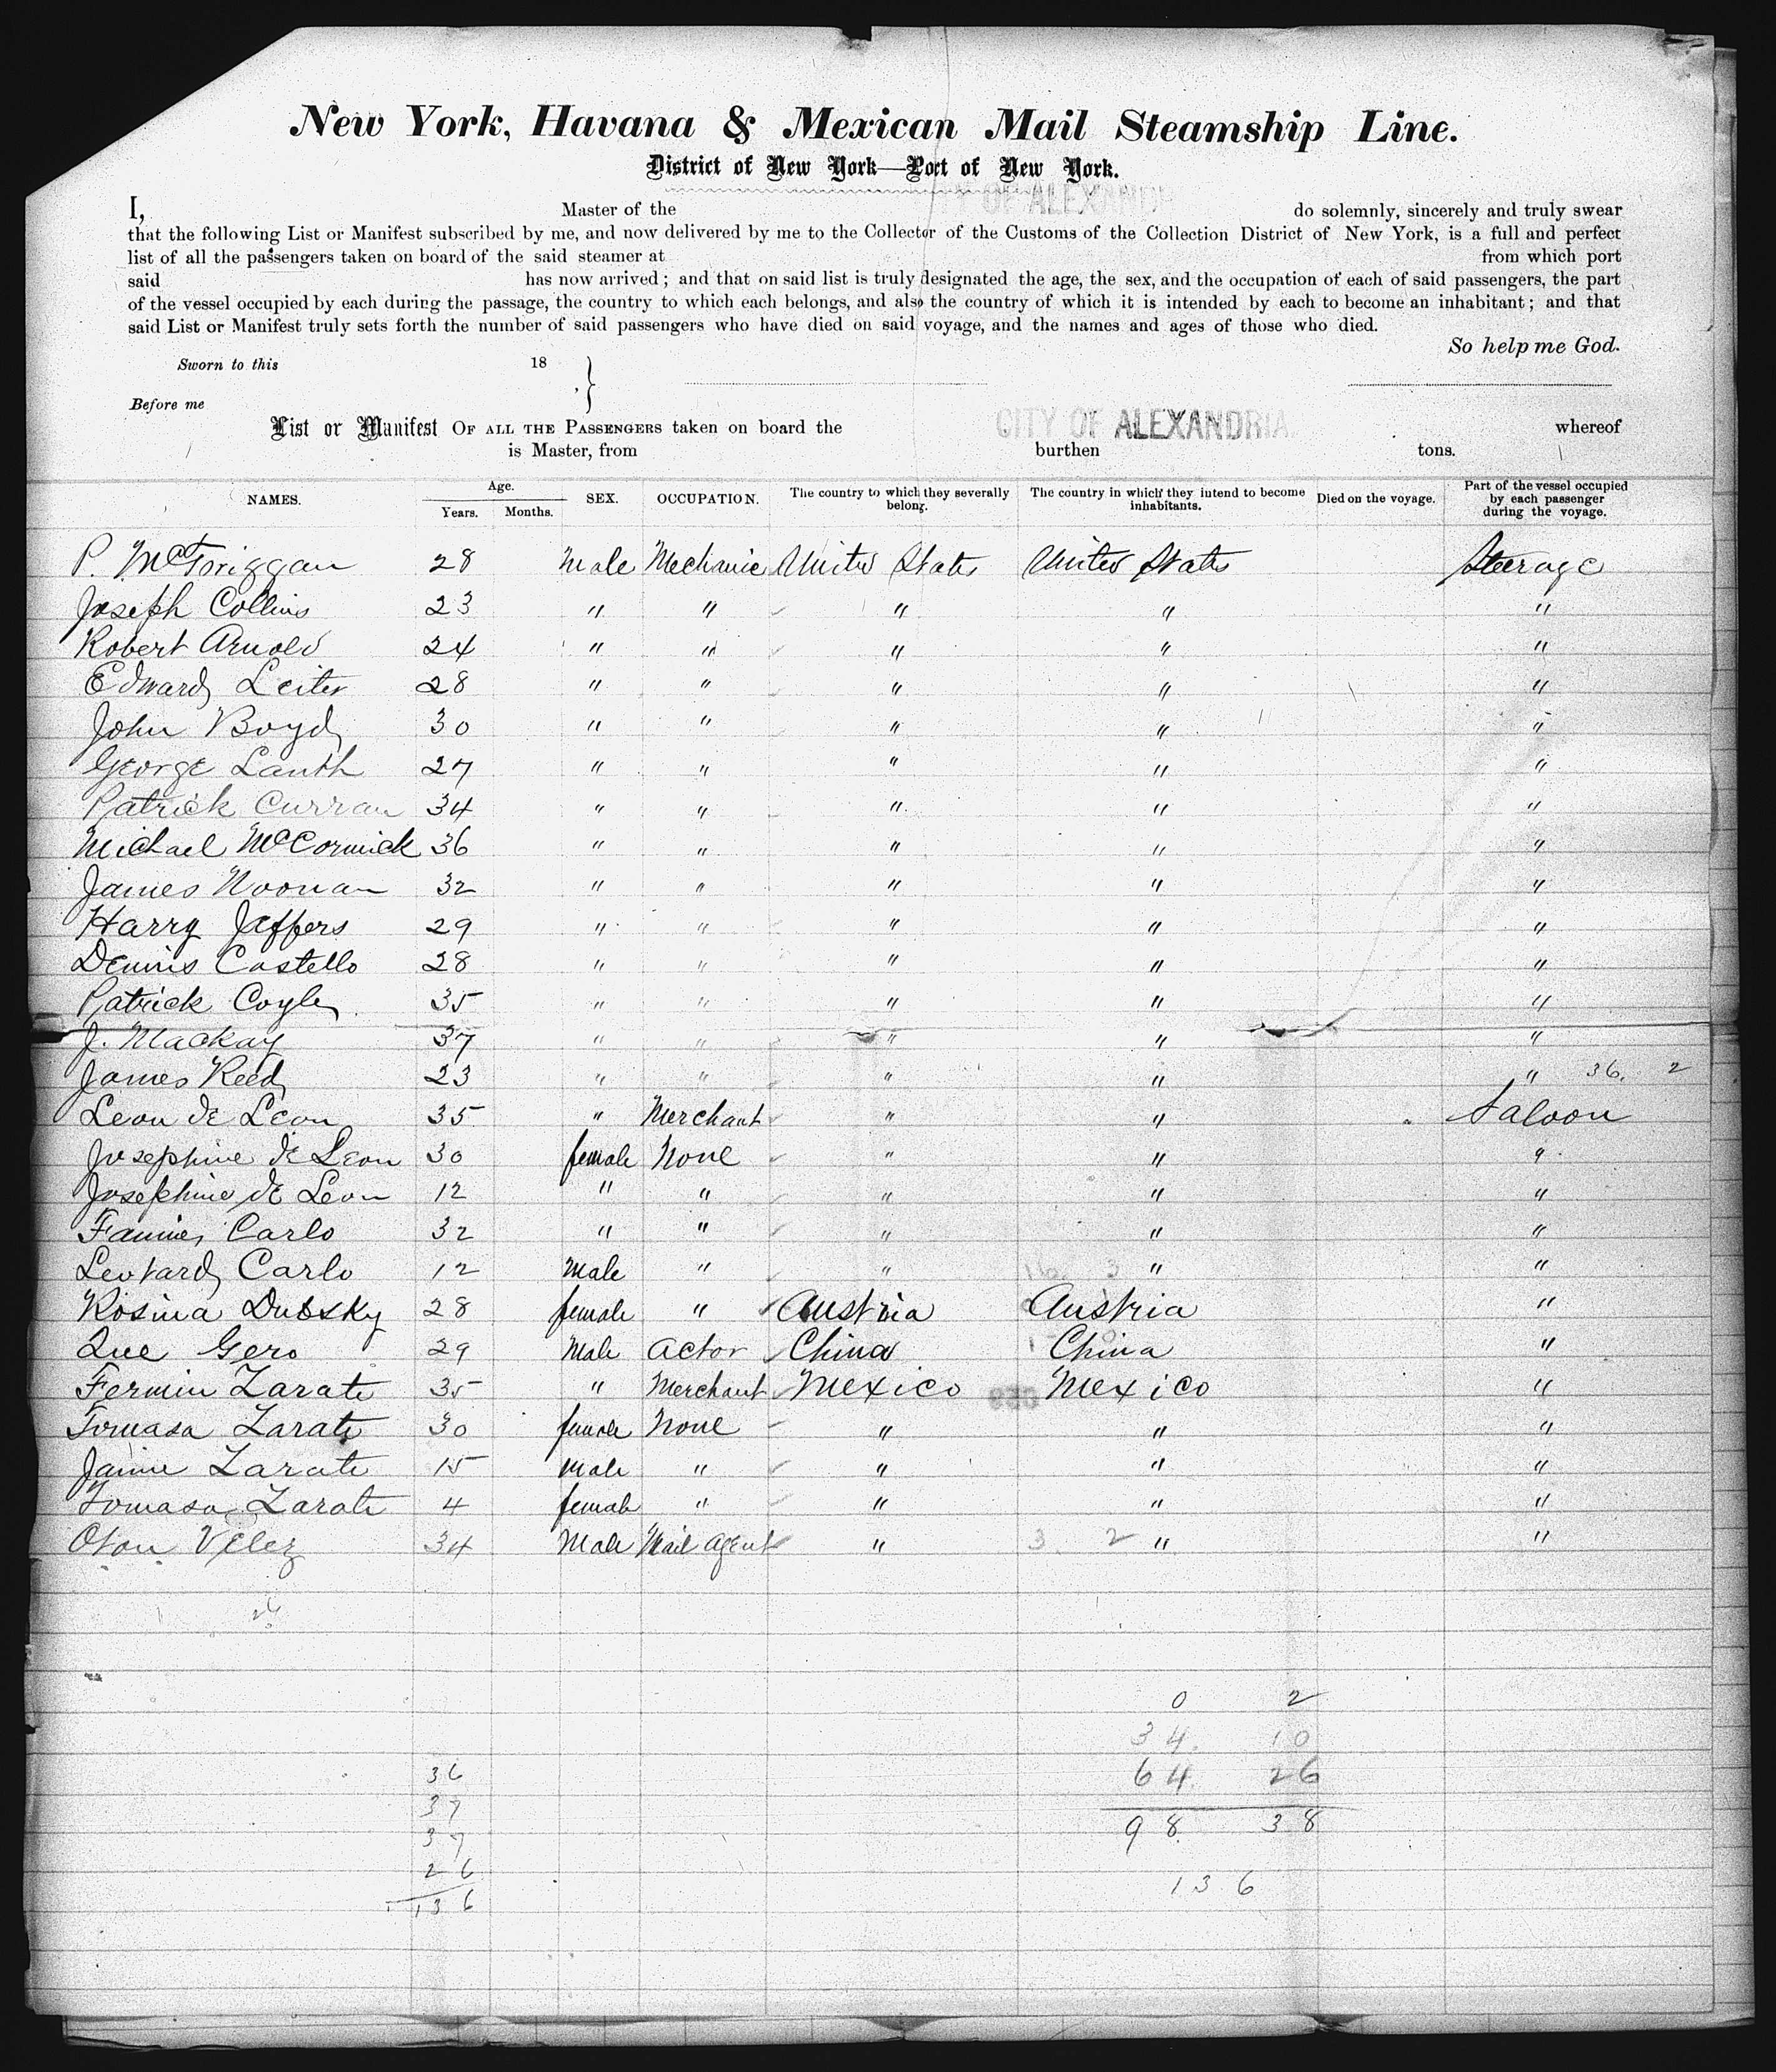 New York, Havana & Mexican Mail Steamship Line.
District of New York—Port of New York.
CITY OF ALEXAND
I, Master of the do solemnly, sincerely and truly swear
that the following List or Manifest subscribed by me, and now delivered by me to the Collector of the Customs of the Collection District of New York, is a full and perfect
list of all the passengers taken on board of the said steamer at from which port
said has now arrived; and that on said list is truly designated the age, the sex, and the occupation of each of said passengers, the part
of the vessel occupied by each during the passage, the country to which each belongs, and also the country of which it is intended by each to become an inhabitant; and that
said List or Manifest truly sets forth the number of said passengers who have died on said voyage, and the names and ages of those who died.
So help me God.
Sworn to this 18
Before me
List or Manifest OF ALL THE PASSENGERS taken on board the CITY OF ALEXANDRIA whereof
is Master, from burthen tons.
NAMES. Age. Years. Months. SEX. OCCUPATION. The country to which they severally belong. The country in which they intend to become inhabitants. Died on the voyage. Part of the vessel occupied by each passenger during the voyage.
P. 28 Male Mechanic United States United States Steerage
Joseph Collins 23 " " " " "
Robert Arnold 24 " " " " "
Edward Leiter 28 " " " " "
John Boyd 30 " " " " "
George 27 " " " " "
Patrick Curran 34 " " " " "
Michael McCormick 36 " " " " "
James Noonan 32 " " " " "
Harry Jeffers 29 " " " " "
Dennis Costello 28 " " " " "
Patrick Coyle 35 " " " " "
J. Mackay 37 " " " " "
James Reed 23 " " " " " 36. 2
Leon de Leon 35 " Merchant " " Saloon
Josephine de Leon 30 female None " " "
Josephine de Leon 12 " " " " "
Fannie Carlo 32 " " " " "
Carlo 12 Male " " " "
Rosina Dubsky 28 female " Austria Austria "
Que Gero 29 Male Actor China China "
Fermin Zarate 35 " Merchant Mexico Mexico "
Tomasa Zarate 30 female None " " "
Jaime Zarate 15 Male " " " "
Tomasa Zarate 4 female " " " "
Oton Velez 34 Male Mail Agent " 3 2 " "
0 2
34. 10
64. 26
98. 38
136
36
37
37
26
136